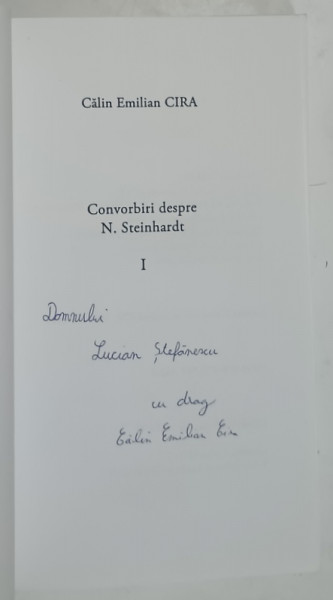 Călin Emilian CIRA
Convorbiri despre
N. Steinhardt
I
Domnului
Lucian Ștefănescu
cu drag
Călin Emilian Cira